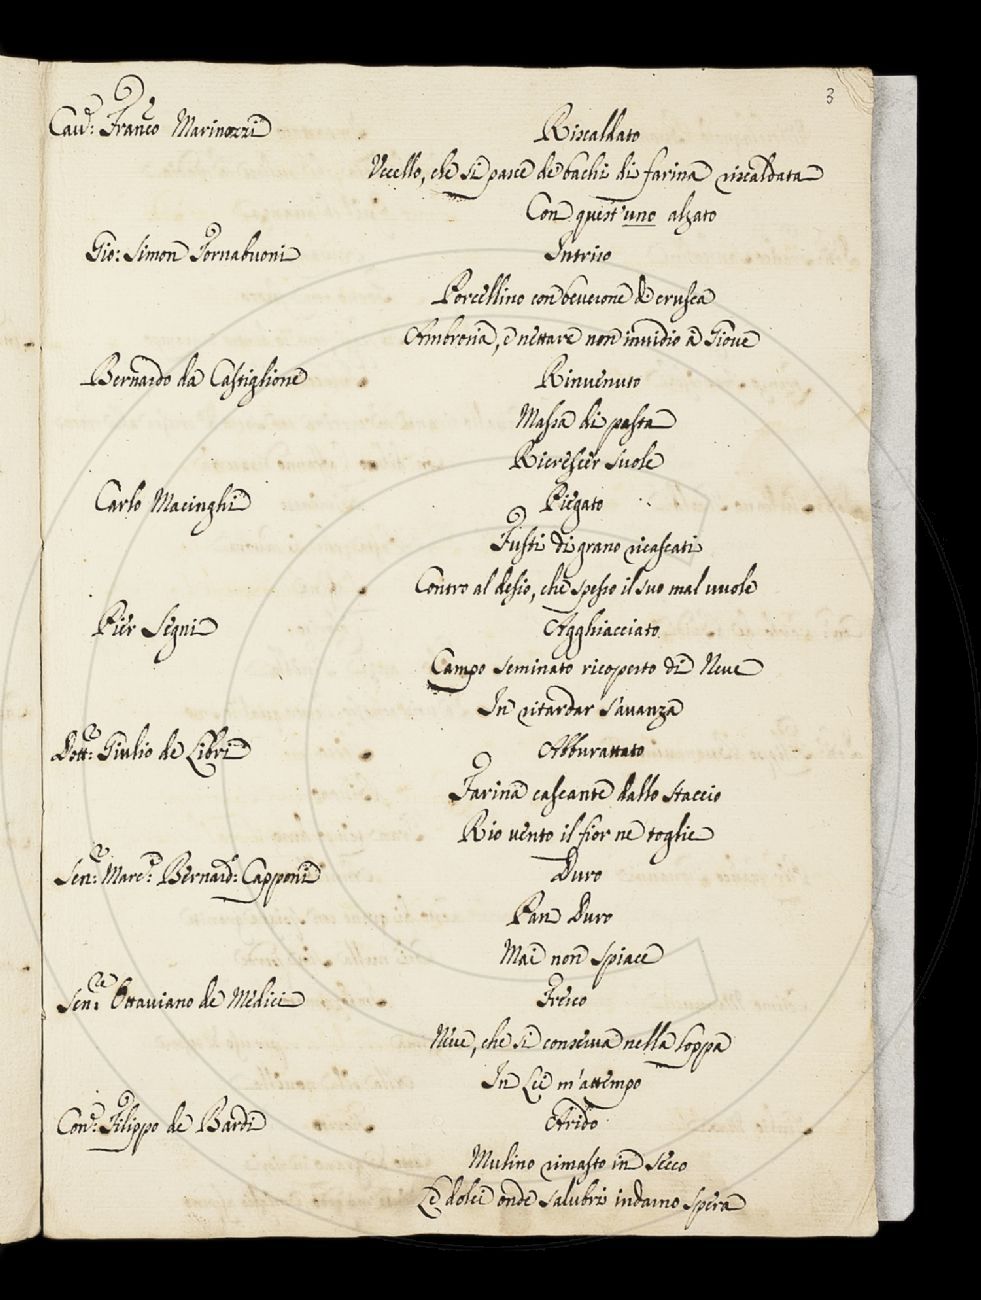 3
Cav.r: Franc.o Marinozzi Riscaldato
Vccello, che si pasce de bachi di farina riscaldata
Con quest'uno alzato
Gio: Simon Tornabuoni Intriso
Porcellino con beverone di crusca
Ambrosia, e nettare non invidio à Giove
Bernardo da Castiglione Rinvenuto
Massa di pasta
Ricrescer suole
Carlo Macinghi Piegato
Fusti di grano ricascati
Contro al desio, che spesso il suo mal vuole
Pier Segni Agghiacciato
Campo seminato ricoperto di Neve
In ritardar s'avanza
Dott.re: Giulio de Libri Abburattato
Farina cascante dallo staccio
Rio vento il fior ne toglie
Sen.re: Marc.e: Bernard.o: Capponi Duro
Pan Duro
Mai non spiace
Sen.re: Ottaviano de Medici Fresco
Neve, che si conserva nella loppa
In Lei m'attempo
Con.e: Filippo de Bardi Arido
Mulino rimasto in secco
Le dolci onde salubri indarno spera